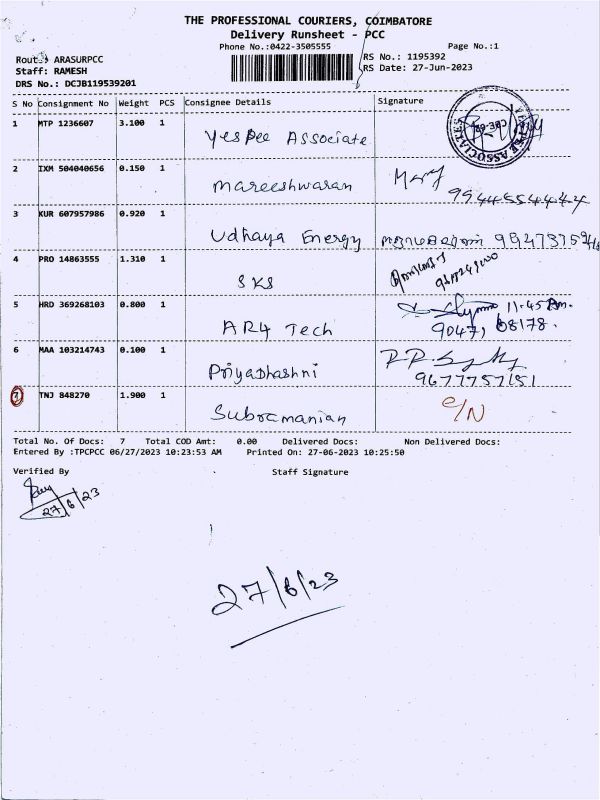 THE PROFESSIONAL COURIERS, COIMBATORE
Delivery Runsheet - PCC
Phone No.:0422-3505555 Page No.:1
Route: ARASURPCC RS No.: 1195392
Staff: RAMESH RS Date: 27-Jun-2023
DRS No.: DCJB119539201
S No Consignment No Weight PCS Consignee Details Signature
1 MTP 1236607 3.100 1 Yespee Associate
2 IXM 504040656 0.150 1 mareeshwaran
3 KUR 607957986 0.920 1 Udhaya Energy
4 PRO 14863555 1.310 1 SKS
5 HRD 369268103 0.800 1 AR4 Tech 11.45 Am.
9047, 68178.
6 MAA 103214743 0.100 1 Priyadhashni
9677757151
7 TNJ 848270 1.900 1 Subramanian
Total No. Of Docs: 7 Total COD Amt: 0.00 Delivered Docs: Non Delivered Docs:
Entered By :TPCPCC 06/27/2023 10:23:53 AM Printed On: 27-06-2023 10:25:50
Verified By Staff Signature
27/6/23
27/6/23